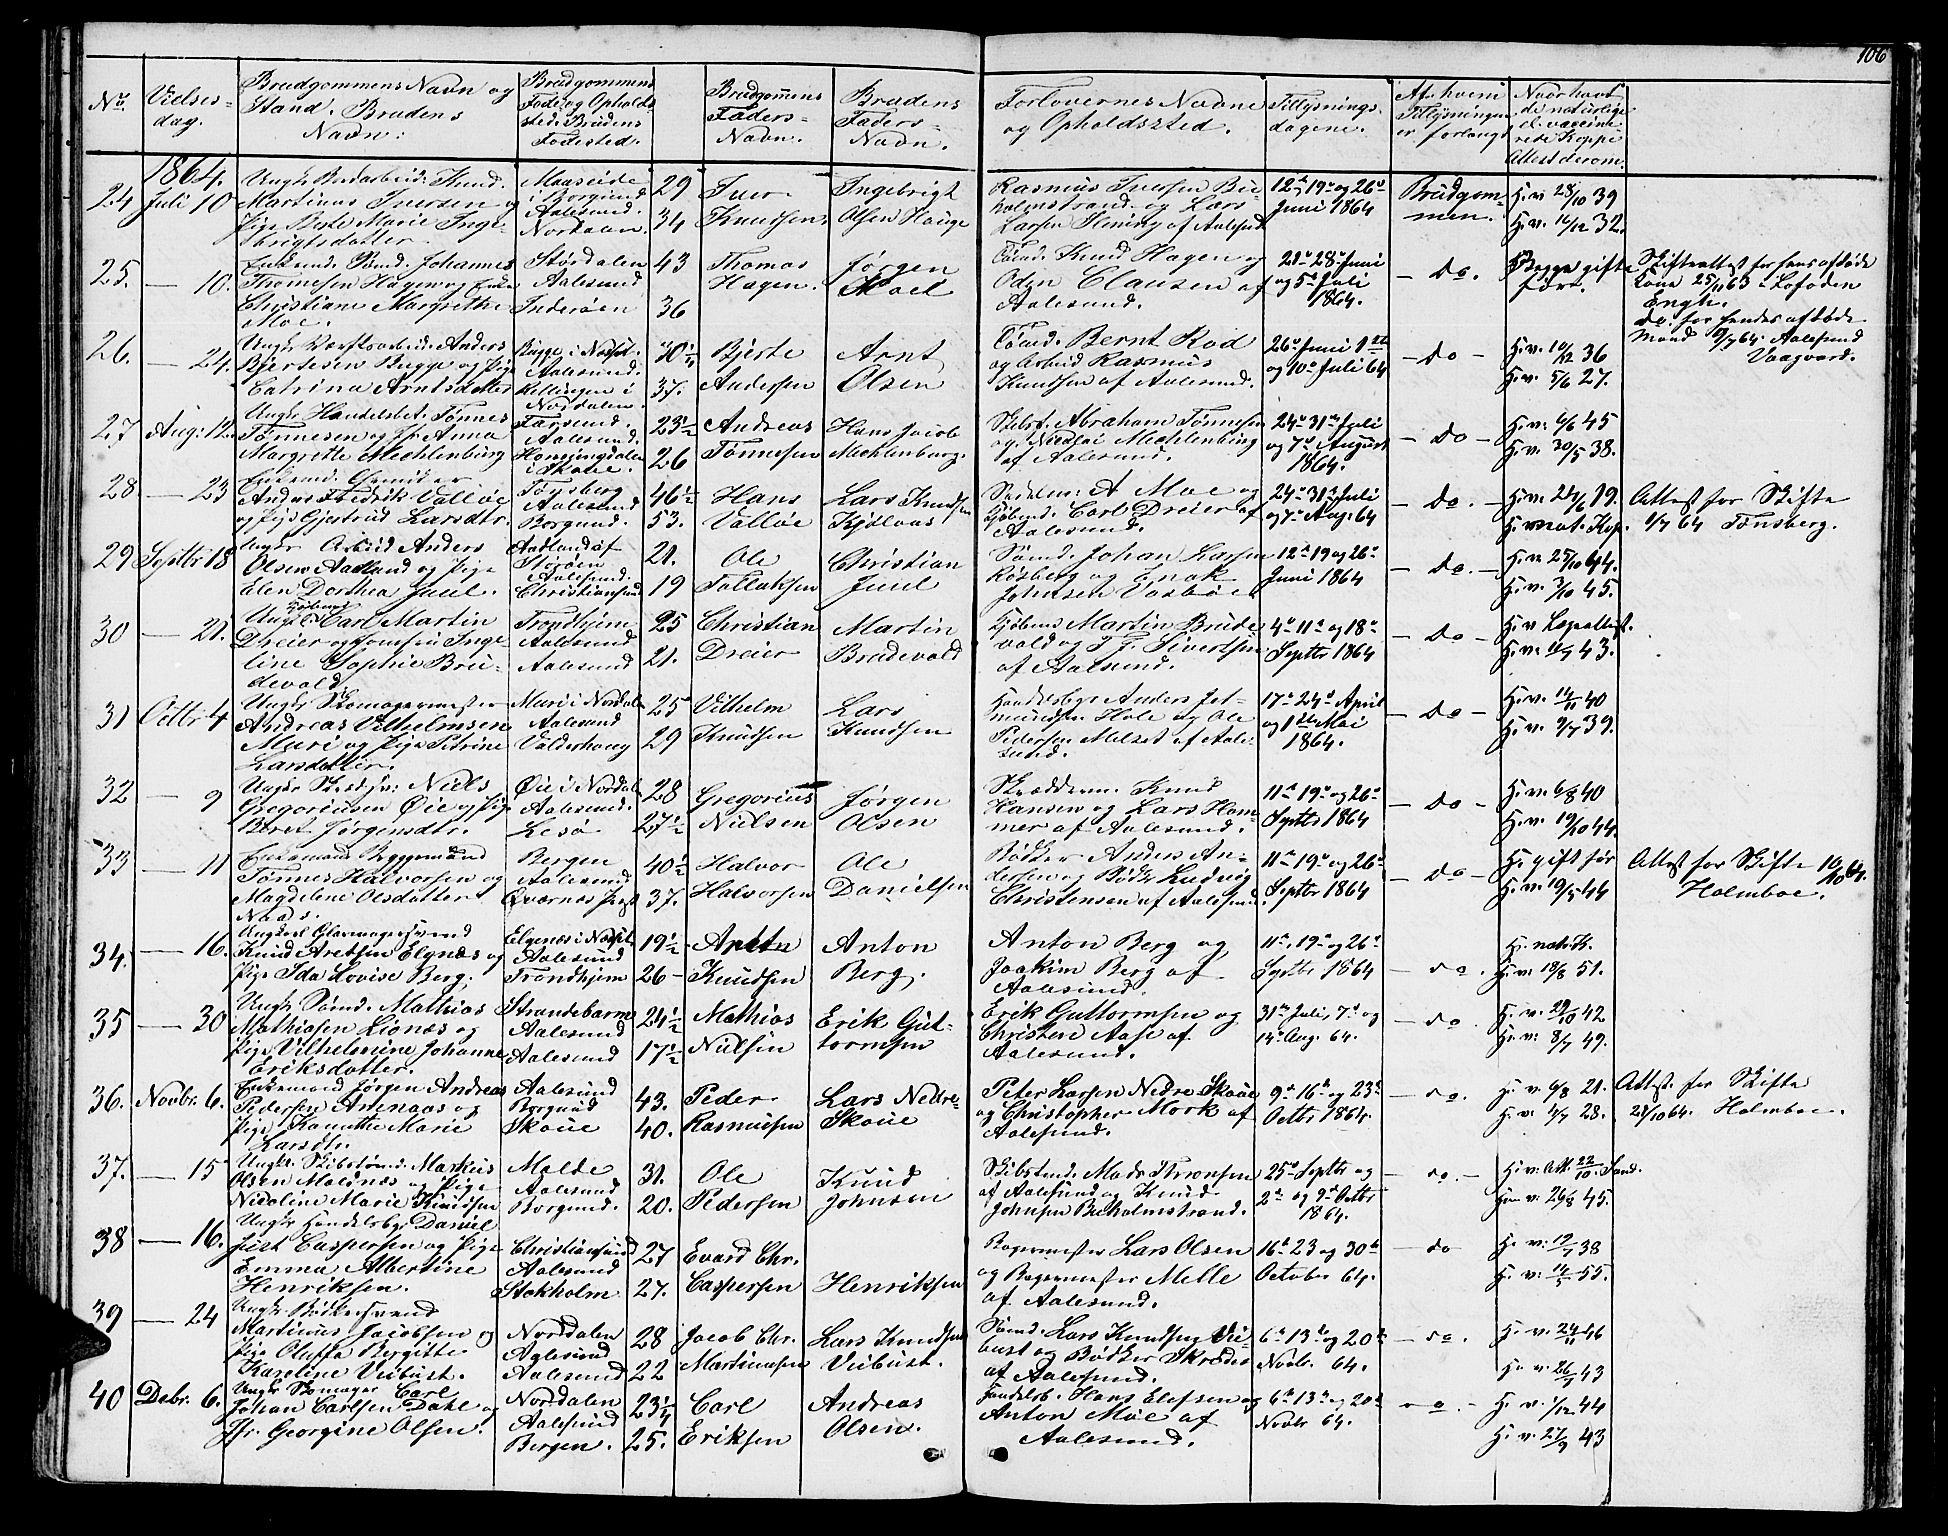 106
No. Vielses-dag. Brudgommens Navn og Stand. Brudens Navn: Brudgommens Føde og Opholdssted. Brudens Fødested. Brudgommens Faders Navn. Brudens Faders Navn. Forlovernes Navne og Opholdssted. Tillysnings-dagene. Af hvem Tillysningen er forlangt Naar havt de naturlige el. vaccinerede Kopper Attest derom.
1864.
24 Juli 10 Martinus Iversen og Pige Berte Marie Ingebrigtsdatter Maaseide i Borgund Aalesund. Nordalen 29 34 Iver Knudsen Ingebrigt Olsen Hauge Rasmus Iversen Buholmstrand og Lars Larsen Fleming af Aalesund 12te 19de og 26de Juni 1864 Brudgommen. H. v. 28/10 39 H. v. 16/12 32.
25. — 10. Johannes Thomesen Hagen og Enke Christiane Margrethe Moe. Størdalen Aalesund Inderøen 43 36 Thomas Hagen. Jørgen Moel Knud Hagen og Odin Clausen af Aalesund. 21de 28de Juni og 5te Juli 1864. — do. Begge gifte førr. Skifteattest for hans afdøde Kone 25/11 63 Lofoden Engh. do. for hendes afdøde Mand 64. Aalesund Vaagaard.
26. — 24. Anders Bjertesen Bugge og Pige Catrina Arntsdatter Bugge i Aalesund. Nordalen. 30½ 37. Bjerte Andersen Arnt Olsen Bernt Rød og Arbeid Rasmus Knudsen af Aalesund. 26de Juni 1ste og 10de Juli 64 — do — H. v. 10/12 36 H. v. 5/6 27.
27 Aug: 12. Ungk. Handelsbet. Tønnes Tønnesen og Jfr Anna Margrethe Mechlenburg Farsund. Aalesund. i Skoue. 23½ 26 Andreas Tønnesen Hans Jacob Mechlenburg. Abraham Tønnesen og Nicolai Mechlenburg af Aalesund. 24de 31te Juli og 7de August 1864. — do — H. v. 6/6 45 H. v. 30/5 38.
28 — 23 Andreas Fredrik Valløe og Pige Gjertrud Larsdtr. Tønsberg Aalesund Borgund. 46½ 53. Hans Valløe Lars Knudsen A. Moe og Carl Dreier af Aalesund. 24de 31te Juli og 7de Aug. 64 — do. — H. v. 24/6 19. H. v. nat. Kop. Attest for Skifte 1/7 64 Tønsberg.
29 Septbr 18 Ungkr Arbeid Anders Olsen Aadland og Pige Elen Dorthea Juul. Aadland af Størøen Aalesund. Christiansund 21. 19 Ole Tollaksen Christian Juul Johan Larsen Røsberg og Enok Johnsen Vasbøe 12te 19 og 26de Juni 1864 — do. — H. v. 25/10 44. H. v. 7/10 45.
30 — 21. Carl Martin Dreier og Jomfru Ingeline Sophie Brudevold. Trondhjem Aalesund Aalesund 25 21. Christian Dreier Martin Brudevold Kjøbmd Martin Brudevold og T. J. Sivertsen af Aalesund. 4de 11te og 18de Septbr 1864 — do — H. v. Legeattest. H. v. 11/7 43.
31 Octbr 4 Ungkr Skomagermester Andreas Vilhelmsen Muri og Pige Petrine Larsdatter. Muri i Nordalen Aalesund Valderhoug 25 29 Vilhelm Knudsen Lars Knudsen Handelsbgr Anders Hole og Ole Pedersen Melset af Aalesund. 17de 24de April og 1ste Mai 1864. — do — H. v. 14/11 40 H. v. 9/7 39.
32 — 9 Niels Gregoriusen Øie og Pige Beret Jørgensdtr. Øie i Nordal. Aalesund. Lesø 28 27½ Gregorius Nielsen Jørgen Olsen Skrædderm. Knud Hansen og Lars Hammer af Aalesund. 11te 19de og 26de Septbr 1864 — do — H. v. 6/8 40 H. v. 19/10 44.
33 — 11 Enkemand Tønnes Halvorsen og Magdelene Olsdatter Naas. Bergen Aalesund Qværnes 40½ 37. Halvor Halvorsen Ole Danielsen Bødker Anders Andersen og Bødk Ludvig Christensen af Aalesund. 11te 19de og 26de Septbr 1864 — do — H. gift før H. v. 19/5 44 Attest for Skifte 10/10 64. Holmboe.
34. — 16. Knud Aretsen Elgnæs og Pige Ida Lovise Berg. Elgenæs i Aalesund Trondhjem 19½ 26 Knudsen Anton Berg. Anton Berg og Joakim Berg af Aalesund. 11te, 19de og 26de Septbr 1864 — do. H. nat. K. H. v. 18/8 51.
35 — 30 Ungkr Sømd. Mathias Mathiasen Lionæs og Pige Vilhelmine Johanne Eriksdatter. Strandebarm Aalesund Aalesund 24½ 17½ Mathias Nielsen Erik Guttormsen Erik Guttormsen og Christen Aase af Aalesund. 31te Juli, 7de og 14de Aug. 64. — do. H. v. 29/10 42 H. v. 8/7 49.
36. Novbr. 6. Enkemand Jørgen Andreas Pedersen Aarenaas og Pige Marie Larsdtr. Aalesund Borgund Skoue 43. 40. Peder Rasmusen Lars Nedre-Skoue Peter Larsen Nedre Skoue og Christopher Mork af Aalesund. 9de 16de og 23de Octbr 1864. — do. H. v. 6/8 21. H. v. 4/7 28. Attest for Skifte 21/10 64. Holmboe.
37. — 15 Markus Olsen Malmæs og Pige Nicoline Marie Knudsen Molde Aalesund Borgund. 31. 20. Ole Pedersen Knud Johnsen Mads Thronsen af Aalesund og Knud Johnsen Buholmstrand. 25de Septbr og 2de og 9de Octbr 1864. — do. — H. v. Att. 22/10. H. v. 26/8 45.
38 — 16. Ungkr Handelsbgr Daniel Just Caspersen og Pige Emma Albertine Henriksen. Christiansund Aalesund Stokholm 27 27. Evard Chr. Caspersen Henriksen Bagermester Lars Olsen og Bagermester Melle af Aalesund. 16de 23 og 30te October 64. — do H. v. 19/7 38 H. v. 14/5 55.
39 — 24 Martinus Jacobsen og Pige Oluffa Bergitte Karoline Viebust. Nordalen Aalesund Aalesund 28 22 Jacob Chr. Martinusen Lars Knudsen Viebust. Sømd. Lars Knudsen Viebust og Bødker af Aalesund. 6te 13de og 20de Novbr. 64. — do. H. v. 24/11 46 H. v. 26/9 43
40 Debr. 6. Ungkr Skomager Carl Johan Carlsen Dahl og Jfr. Georgine Olsen. Nordalen Aalesund Bergen. 23¼ 25. Carl Eriksen Andreas Olsen. Handelsb. Hans Elefsen og Anton Moe af Aalesund. 6te 13de og 20de Novbr 64. — do. — H. v. 1/12 44 H. v. 27/9 43